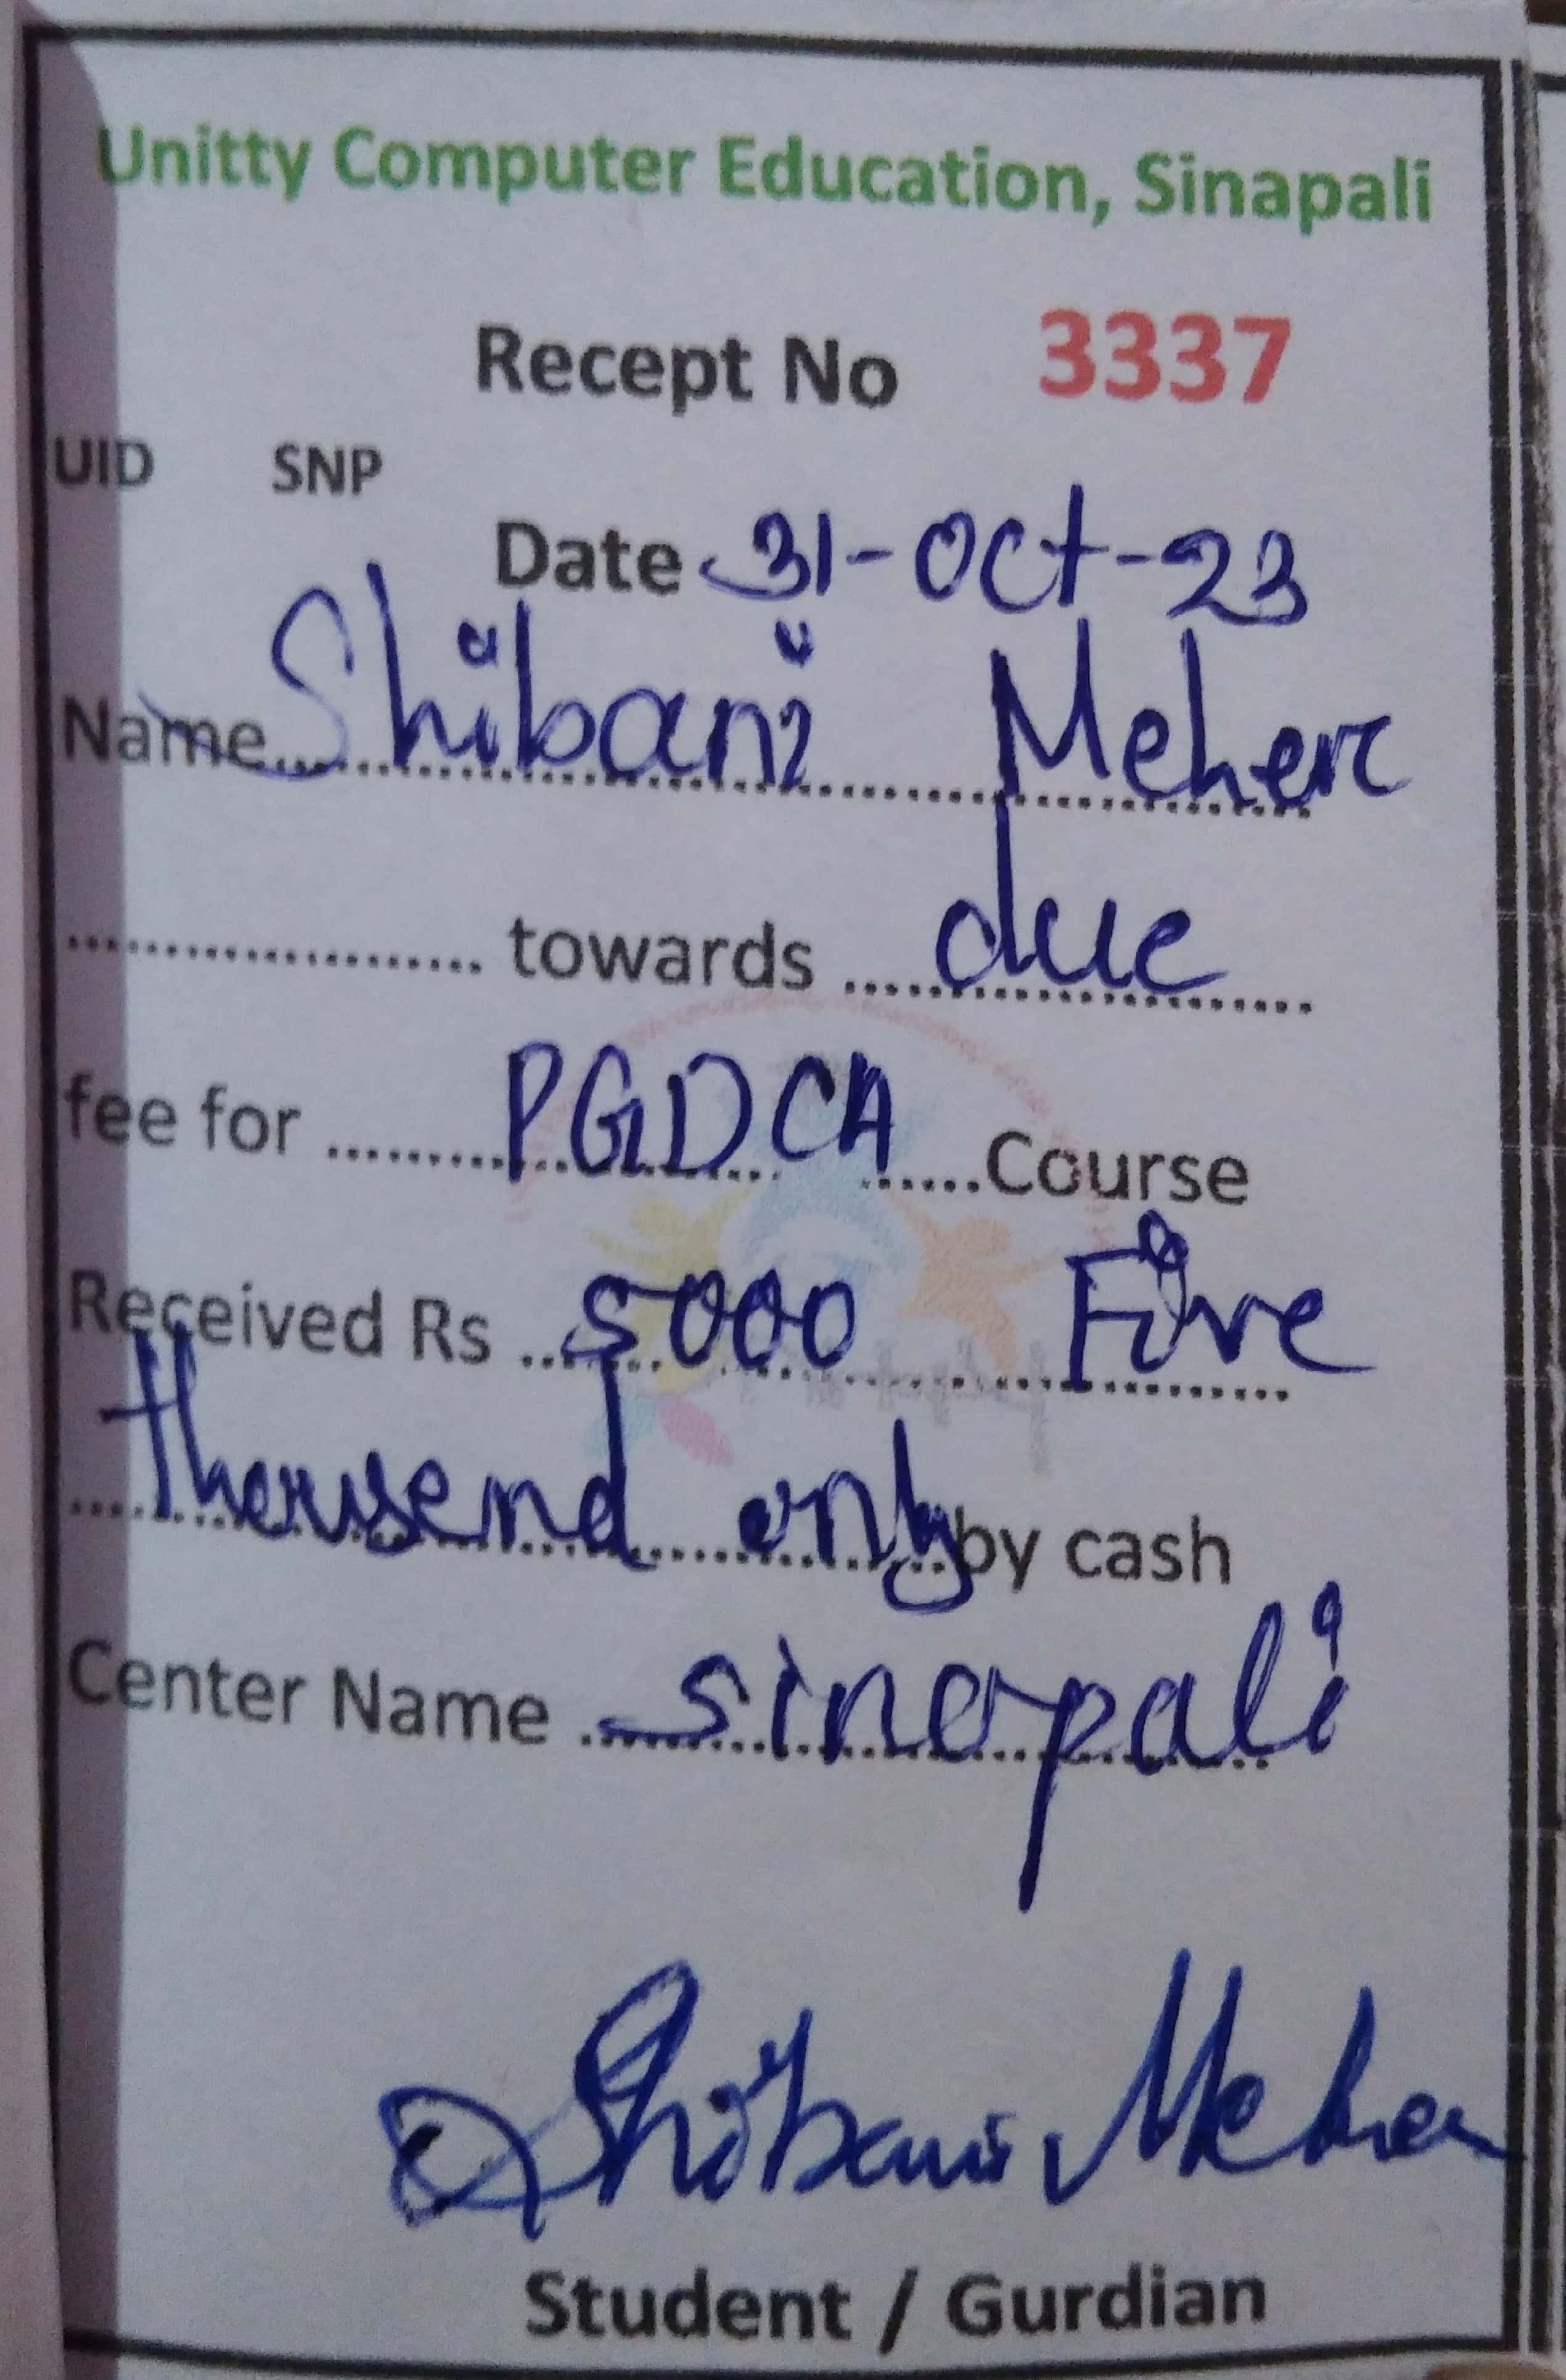 Unitty Computer Education, Sinapali
Recept No 3337
UID SNP
Date 31-Oct-23
Name Shibani Meher
towards due
fee for PGDCA Course
Received Rs 5000 Five
thousend only by cash
Center Name sinapali
Shibani Meher
Student / Gurdian